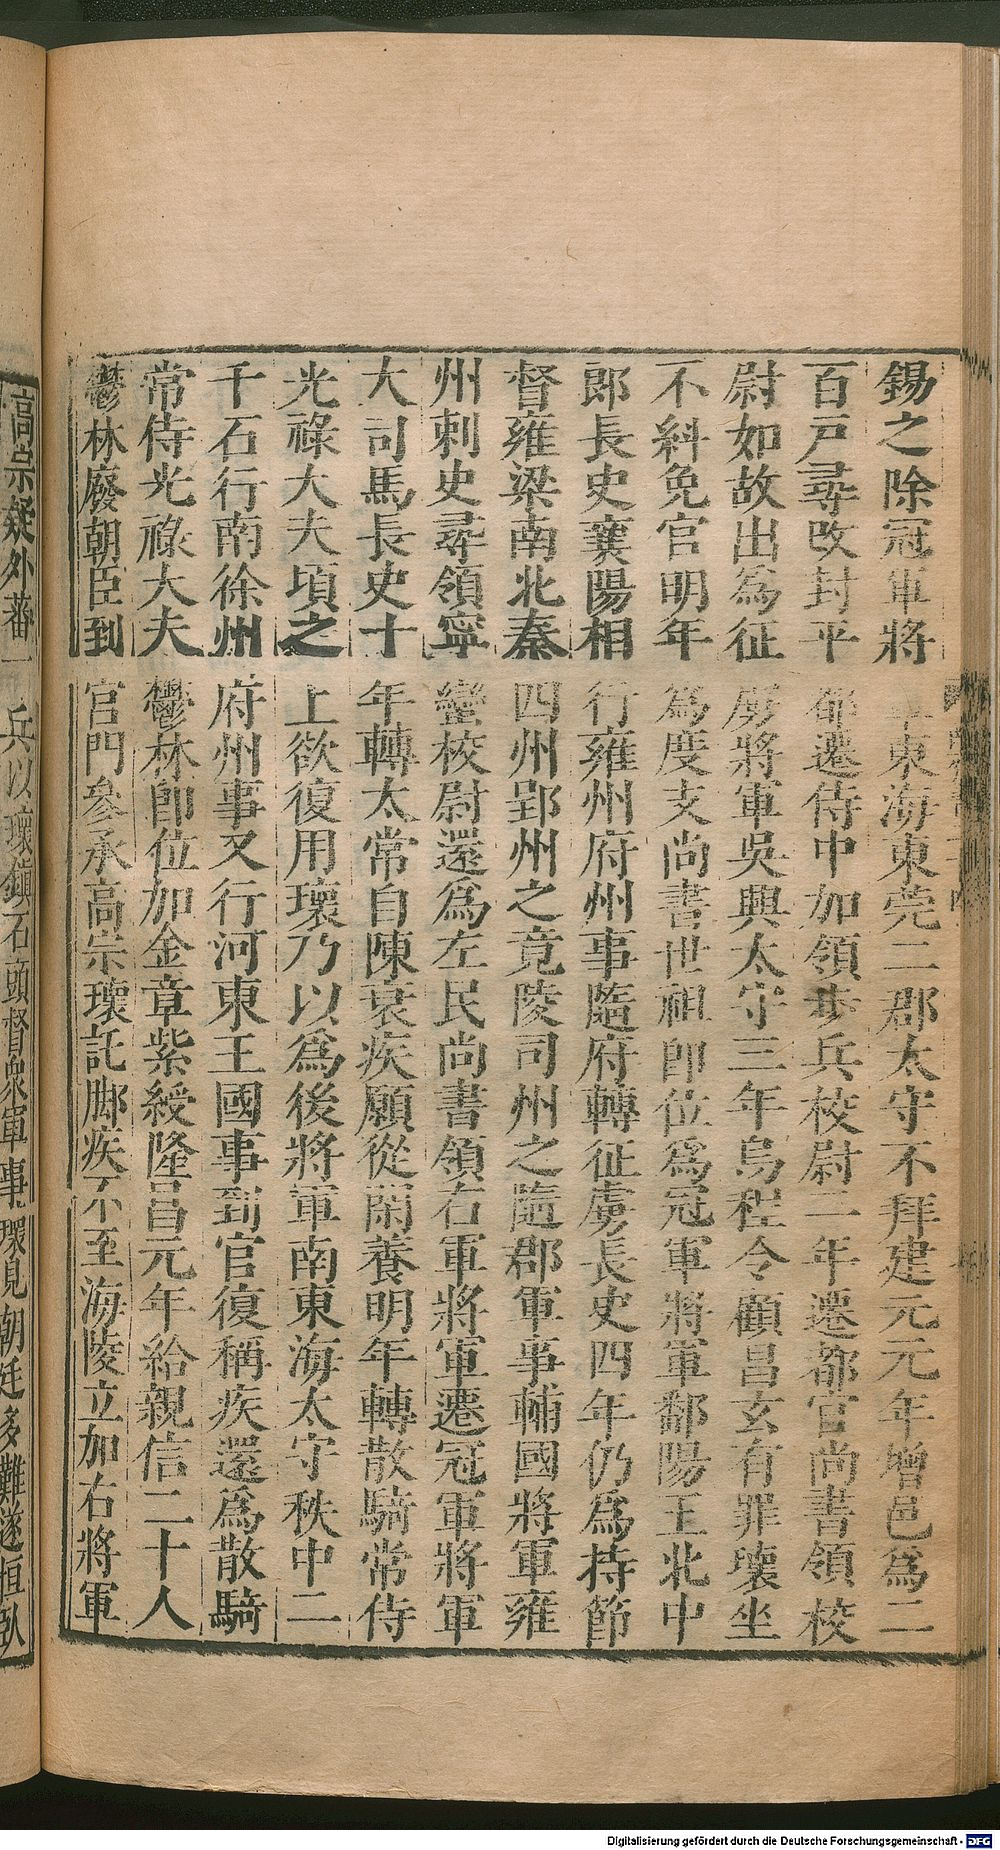 錫之除冠軍將軍東海東莞二郡太守不拜建元元年增邑爲二
百戸尋改封平都遷侍中加領步兵校尉二年遷都官尚書領校
尉如故出爲征虜將軍吳興太守三年烏程令顧昌玄有罪瓌坐
不糾免官明年爲度支尚書世祖即位爲冠軍將軍鄱陽王北中
郎長史襄陽相行雍州府州事隨府轉征虜長史四年仍爲持節
督雍梁南北秦四州郢州之竟陵司州之隨郡軍事輔國將軍雍
州刺史尋領寧蠻校尉還爲左民尚書領右軍將軍遷冠軍將軍
大司馬長史十年轉太常自陳衰疾願從閑養明年轉散騎常侍
光祿大夫頃之上欲復用瓌乃以爲後將軍南東海太守秩中二
千石行南徐州府州事又行河東王國事到官復稱疾還爲散騎
常侍光祿大夫鬱林即位加金章紫綬隆昌元年給親信二十人
鬱林廢朝臣到宮門參承高宗瓌託脚疾不至海陵立加右將軍
高宗疑外蕃一兵以瓌鎮石頭督衆軍事瓌見朝廷多難遂恒臥
Digitalisierung gefördert durch die Deutsche Forschungsgemeinschaft - DFG